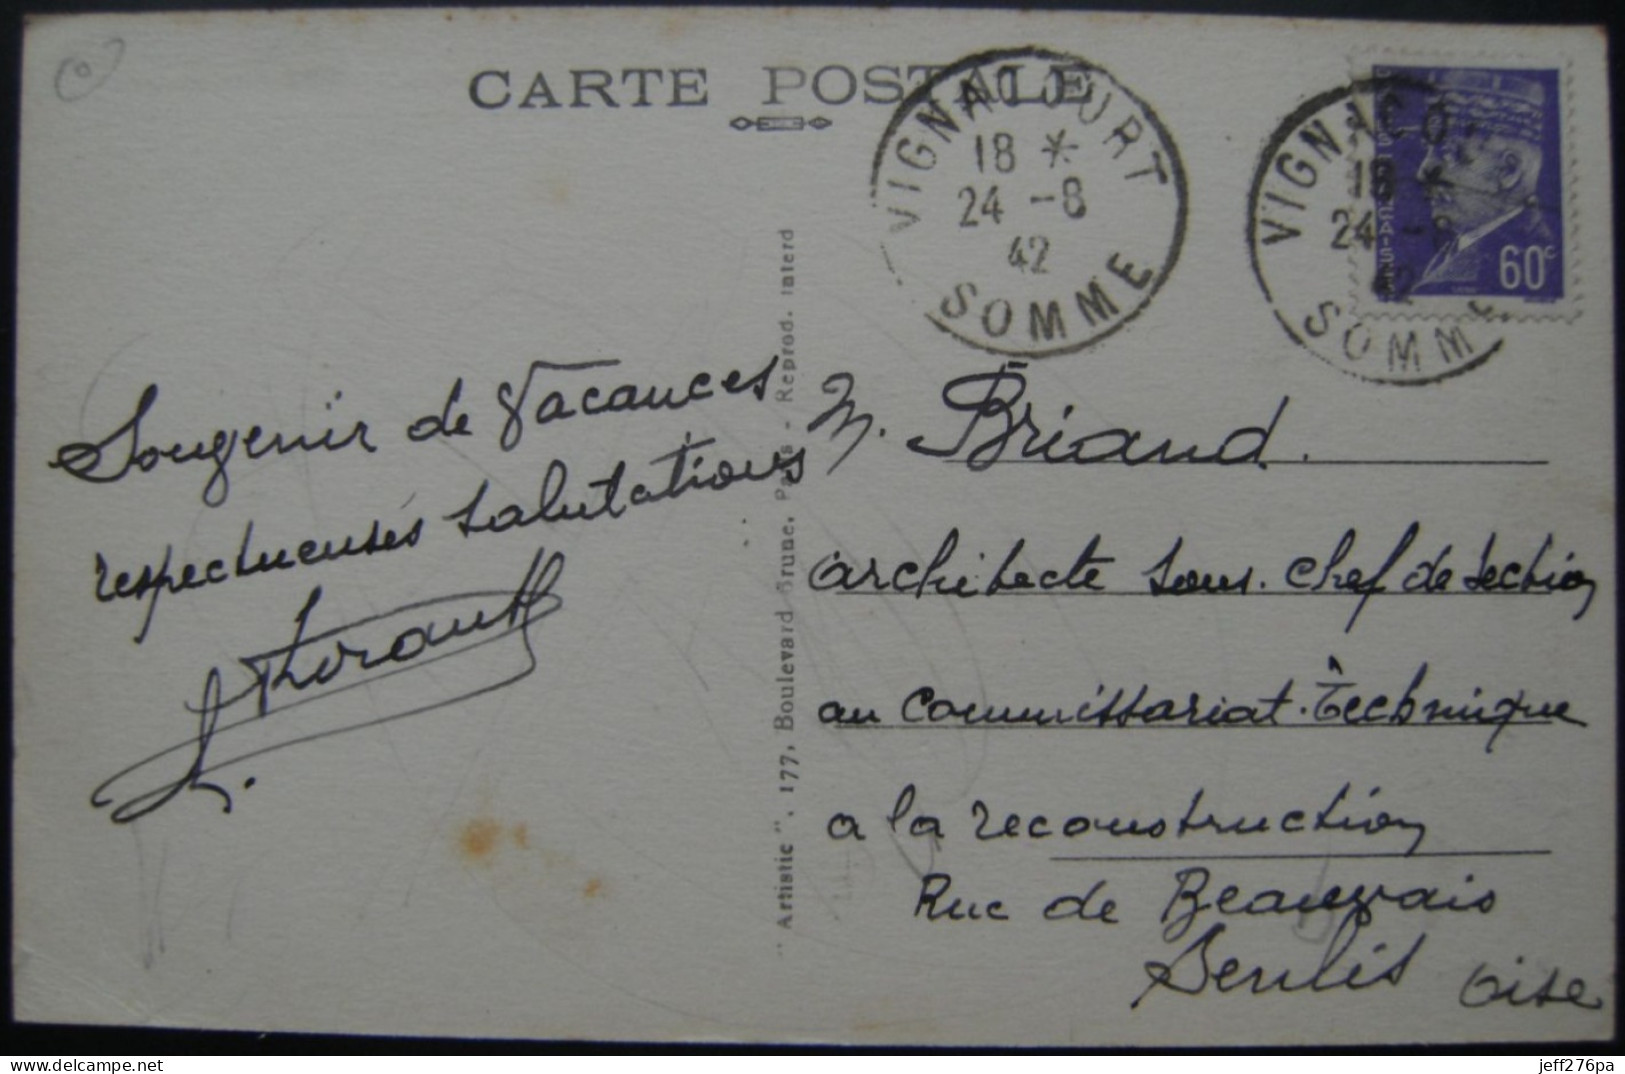 CARTE POSTALE
VIGNACOURT
18 *
24 -8
42
SOMME
VIGNACO
18 *
24 -8
42
SOMME
60c
Souvenir de Vacances
respectueuses salutations
M. Briand.
architecte sous-chef de section
au Commissariat Technique
a la reconstruction
Rue de Beauvais
Senlis Oise
"Artistic", 177, Boulevard Brune, Paris - Reprod. interd
delcampe.net
jeff276pa